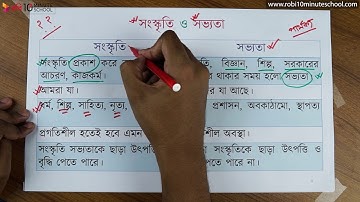 10 SCHOOL
www.robi10minuteschool.com
সংস্কৃতি ও সভ্যতা
পার্থক্য
সংস্কৃতি সভ্যতা
সংস্কৃতি প্রকাশ করে তি, বিজ্ঞান, শিল্প, সরকারের
আচরণ, কাজকর্ম। থাকার সময় হলো সভ্যতা।
আমরা যা। র যা আছে।
ধর্ম, শিল্প, সাহিত্য, নৃত্য, প্রশাসন, অবকাঠামো, স্থাপত্য
প্রগতিশীল হতেই হবে এমন শীল অবস্থা।
সংস্কৃতি সভ্যতাকে ছাড়া উৎপত্তি সংস্কৃতিকে ছাড়া উৎপত্তি ও
বৃদ্ধি পেতে পারে। পেতে পারে না।